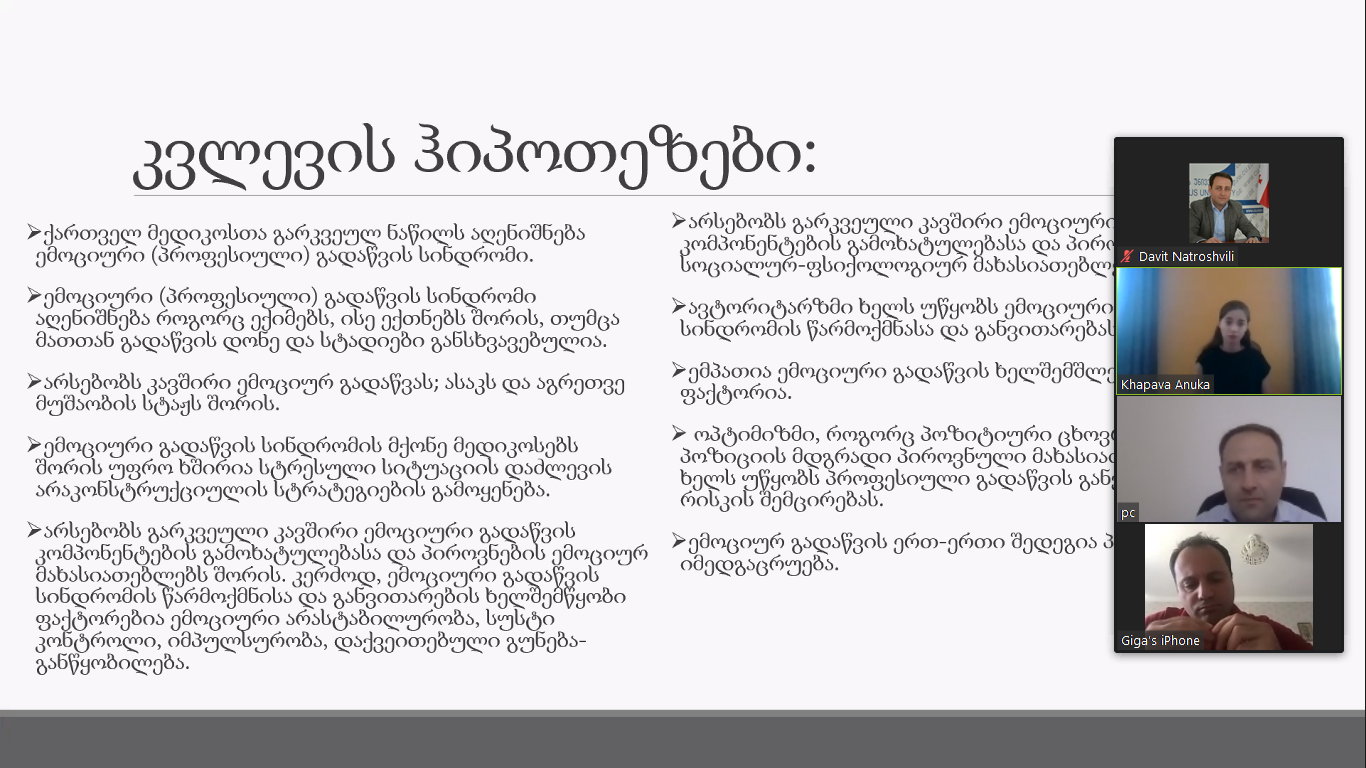 კვლევის ჰიპოთეზები:
➢ქართველ მედიკოსთა გარკვეულ ნაწილს აღენიშნება
ემოციური (პროფესიული) გადაწვის სინდრომი.
➢ემოციური (პროფესიული) გადაწვის სინდრომი
აღენიშნება როგორც ექიმებს, ისე ექთნებს შორის, თუმცა
მათთან გადაწვის დონე და სტადიები განსხვავებულია.
➢არსებობს კავშირი ემოციურ გადაწვას; ასაკს და აგრეთვე
მუშაობის სტაჟს შორის.
➢ემოციური გადაწვის სინდრომის მქონე მედიკოსებს
შორის უფრო ხშირია სტრესული სიტუაციის დაძლევის
არაკონსტრუქციულის სტრატეგიების გამოყენება.
➢არსებობს გარკვეული კავშირი ემოციური გადაწვის
კომპონენტების გამოხატულებასა და პიროვნების ემოციურ
მახასიათებლებს შორის. კერძოდ, ემოციური გადაწვის
სინდრომის წარმოქმნისა და განვითარების ხელშემწყობი
ფაქტორებია ემოციური არასტაბილურობა, სუსტი
კონტროლი, იმპულსურობა, დაქვეითებული გუნება-
განწყობილება.
➢არსებობს გარკვეული კავშირი ემოციური
კომპონენტების გამოხატულებასა და
სოციალურ-ფსიქოლოგიურ
➢ავტორიტარზმი ხელს უწყობს ემოციური
სინდრომის წარმოქმნასა და განვითარებას
➢ემპათია ემოციური გადაწვის
ფაქტორია.
➢ ოპტიმიზმი, როგორც პოზიტიური
პოზიციის მდგრადი პიროვნული
ხელს უწყობს პროფესიული გადაწვის
რისკის შემცირებას.
➢ემოციურ გადაწვის ერთ-ერთი შედეგია
იმედგაცრუება.
Davit Natroshvili
Khapava Anuka
pc
Giga's iPhone